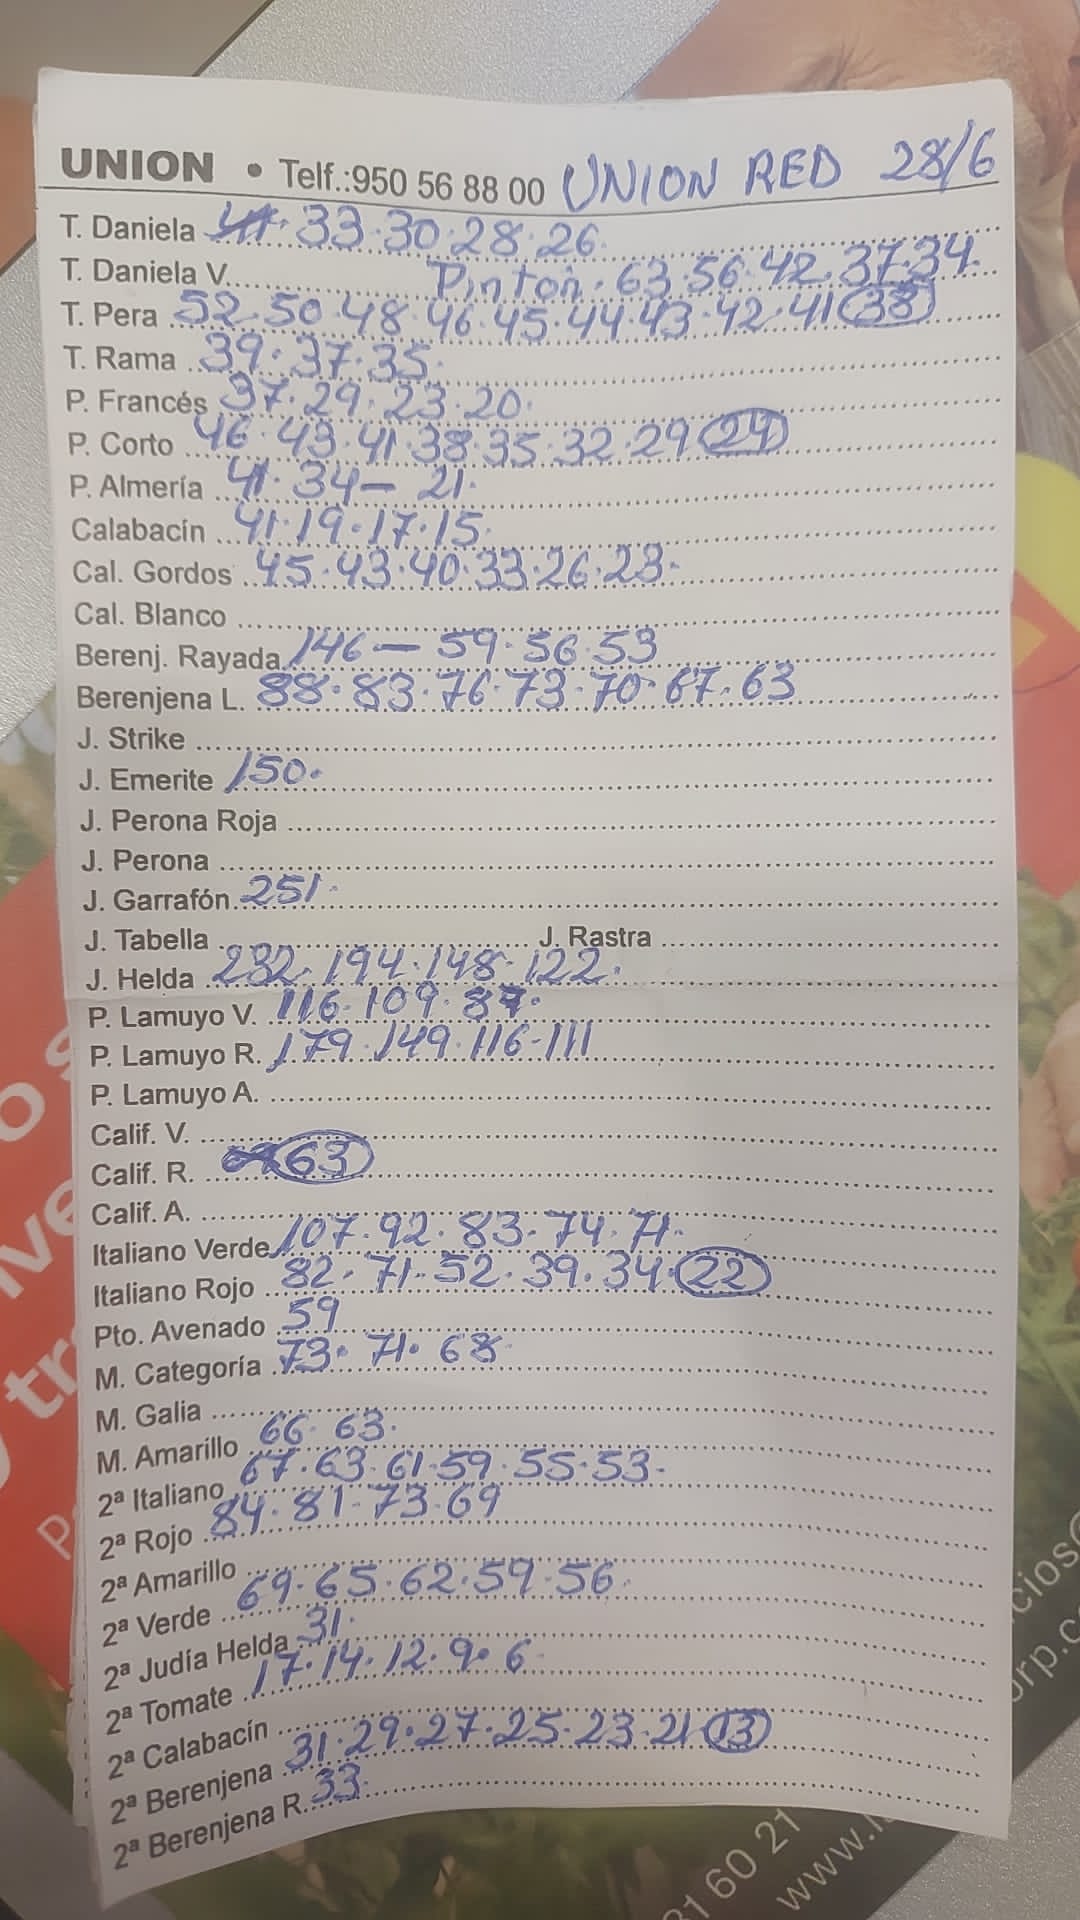 UNION • Telf.:950 56 88 00 UNION RED 28/6
T. Daniela 33·30·28·26
T. Daniela V. Pinton·63·56·42·37·34
T. Pera 52·50·48·46·45·44·43·42·41 38
T. Rama 39·37·35
P. Francés 37·29·23·20
P. Corto 46·43·41·38·35·32·29
P. Almería 41·34— 21
Calabacín 41·19·17·15
Cal. Gordos 45·43·40·33·26·23
Cal. Blanco
Berenj. Rayada 146 — 59·56·53
Berenjena L. 88·83·76·73·70·67·63
J. Strike
J. Emerite 150
J. Perona Roja
J. Perona
J. Garrafón 251
J. Tabella J. Rastra
J. Helda 232·194·148·122
P. Lamuyo V. 116·109·87
P. Lamuyo R. 179·149·116-111
P. Lamuyo A.
Calif. V.
Calif. R. 63
Calif. A.
Italiano Verde 107·92·83·74·71
Italiano Rojo 82·71·52·39·34·22
Pto. Avenado 59
M. Categoría 73·71·68
M. Galia
M. Amarillo 66·63
2ª Italiano 67·63·61·59·55·53
2ª Rojo 84·81·73·69
2ª Amarillo
2ª Verde 69·65·62·59·56
2ª Judía Helda 31
2ª Tomate 17·14·12·9·6
2ª Calabacín
2ª Berenjena 31·29·27·25·23·21 13
2ª Berenjena R. 33
31 60 21
www.